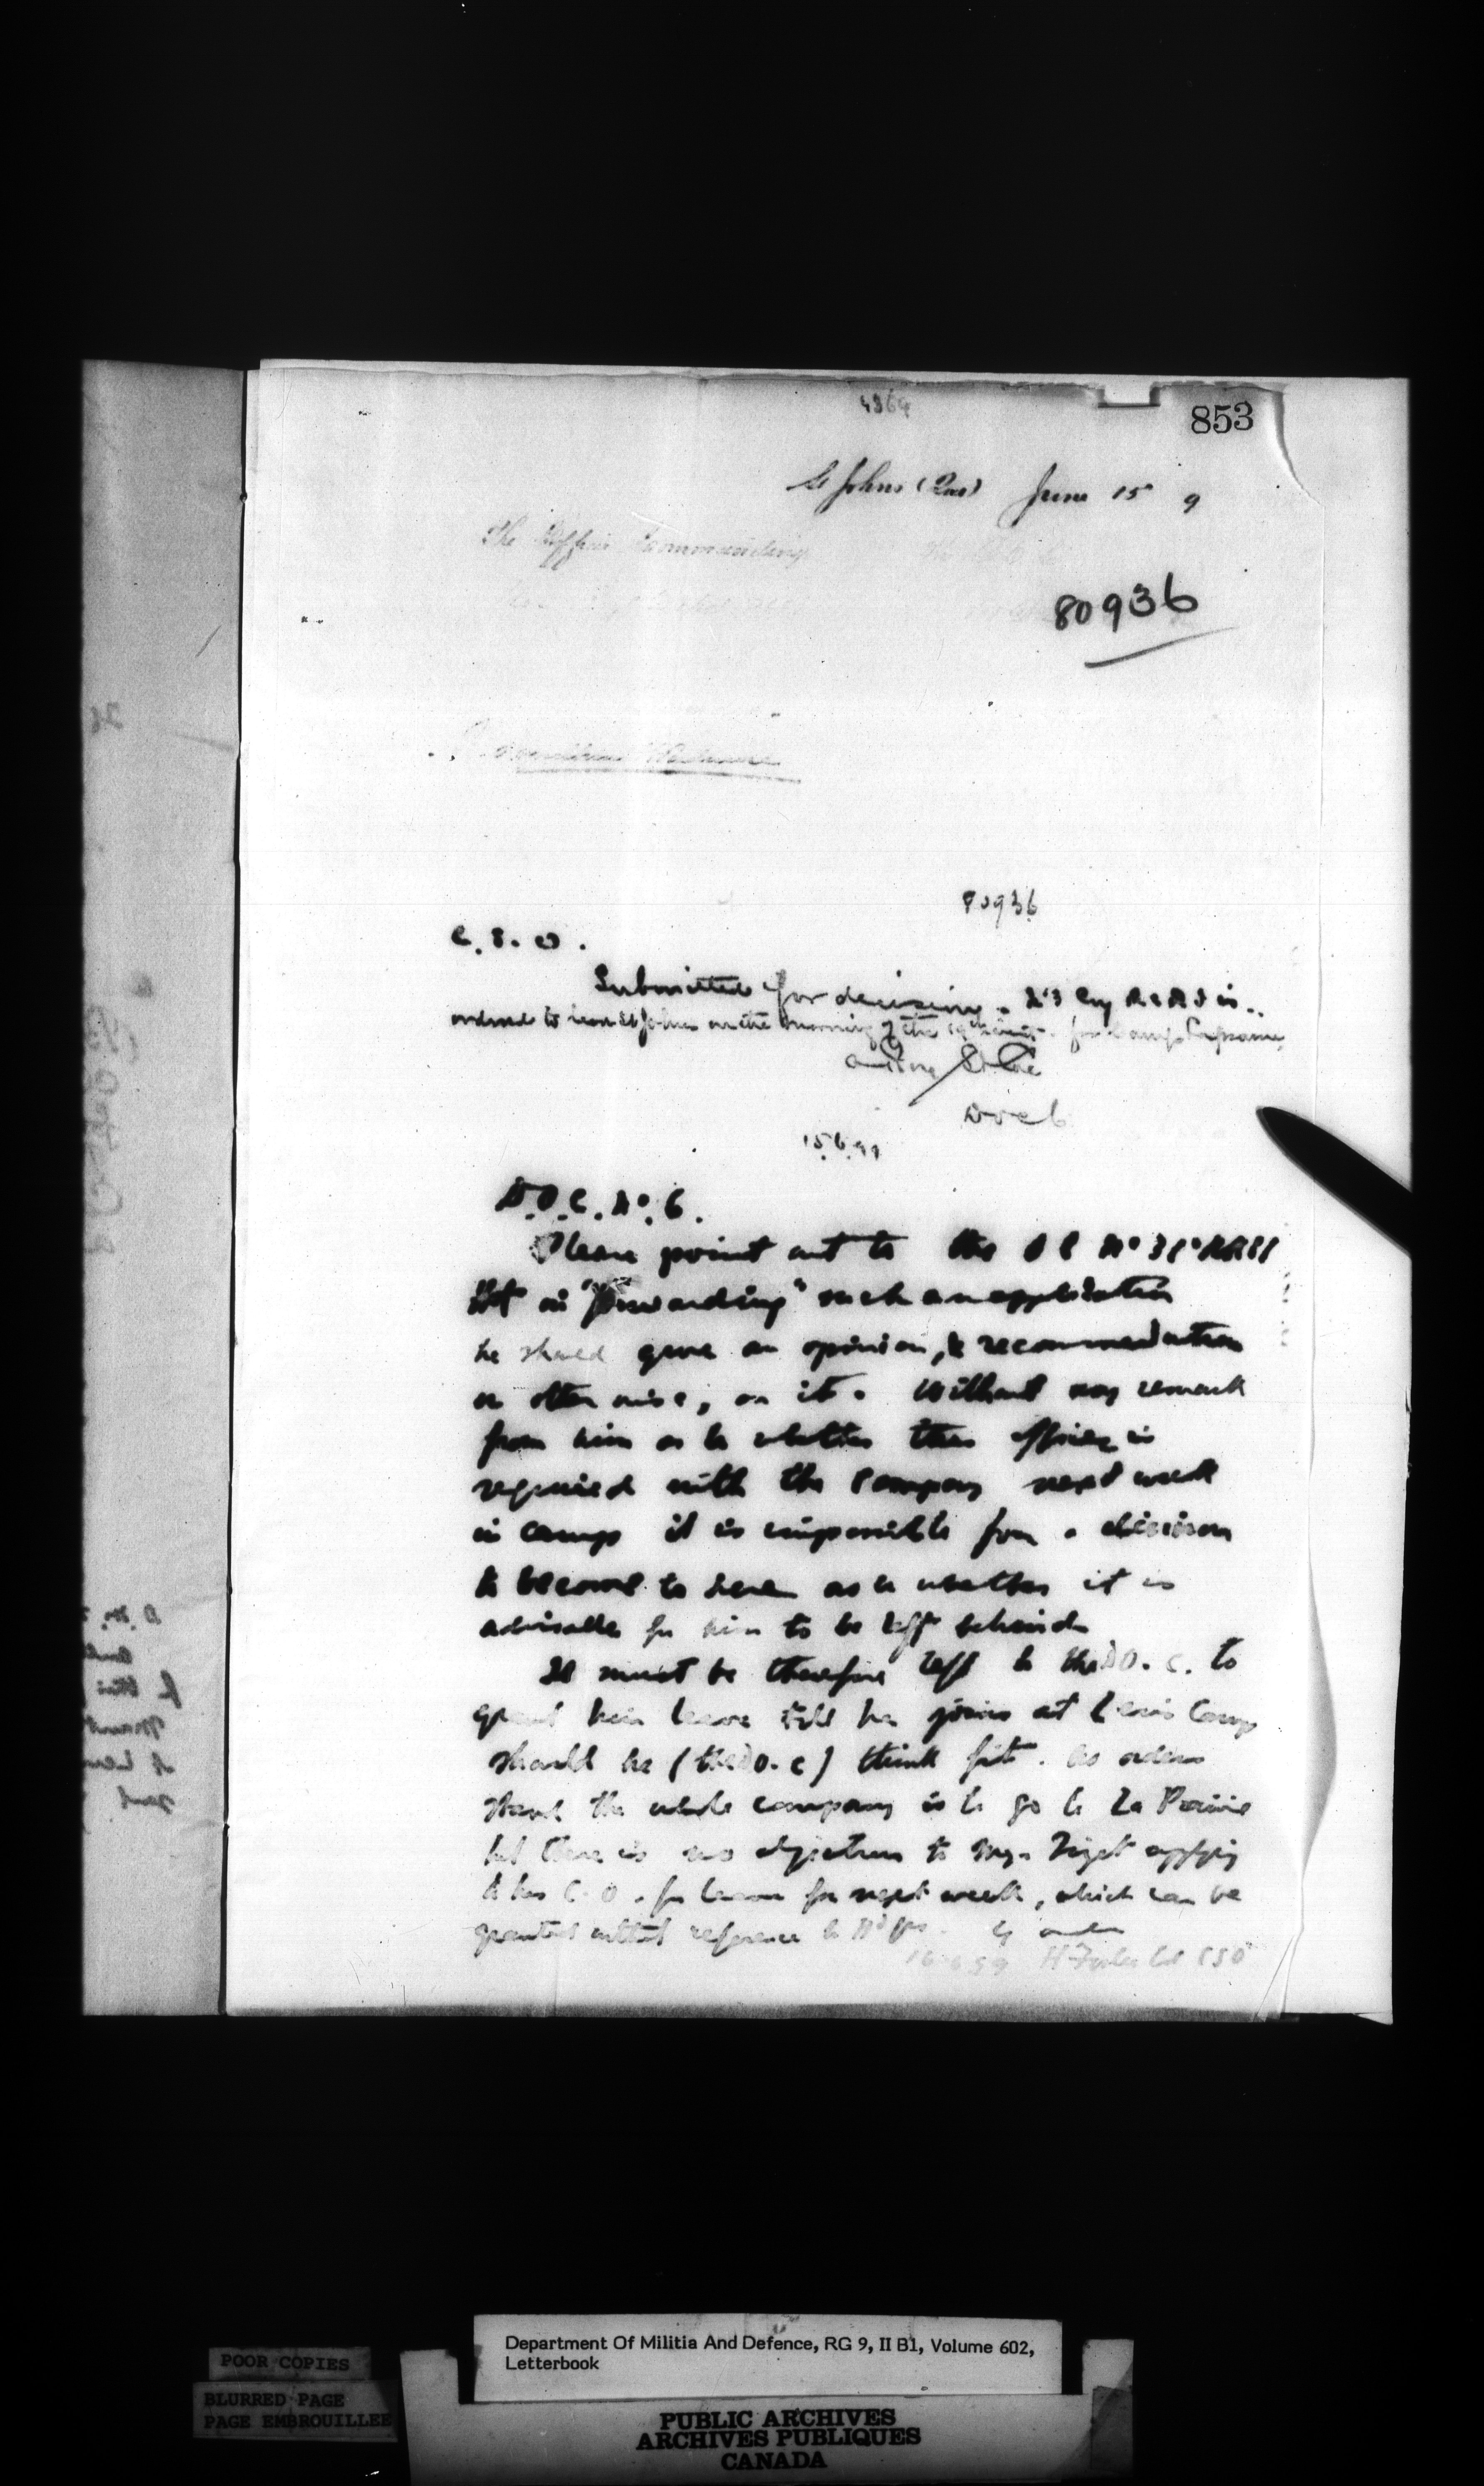 4364
853
St Johns (Que) June 15 9
The Officer Commanding
80936
80936
C.S.O.
Submitted for decision. No 3 Coy R.C.R.I. is
ordered to leave St Johns on the morning of the 19th inst. for Camp Laprairie
D.O.C. 6
15.6.99
D.O.C. No. 6.
Please point out to the O C No 3 Co RRCI
that in "forwarding" such an application
he should give an opinion, & recommendation
or otherwise, on it. Without any remark
from him as to whether this officer is
required with the Company next week
in camp it is impossible for a decision
to be come to here as to whether it is
advisable for him to be left behind.
It must be therefore left to the D.O.C. to
grant him leave till he joins at Levis Camp
should he (the D.O.C) think fit. As orders
stand the whole company is to go to La Prairie
but there is no objection to applying
to his C.O. for leave for next week, which can be
granted without reference to Hd Qrs. By order
16 6 99 H Foster Col CSO
Department Of Militia And Defence, RG 9, II B1, Volume 602,
Letterbook
POOR COPIES
BLURRED PAGE
PAGE EMBROUILLEE
PUBLIC ARCHIVES
ARCHIVES PUBLIQUES
CANADA